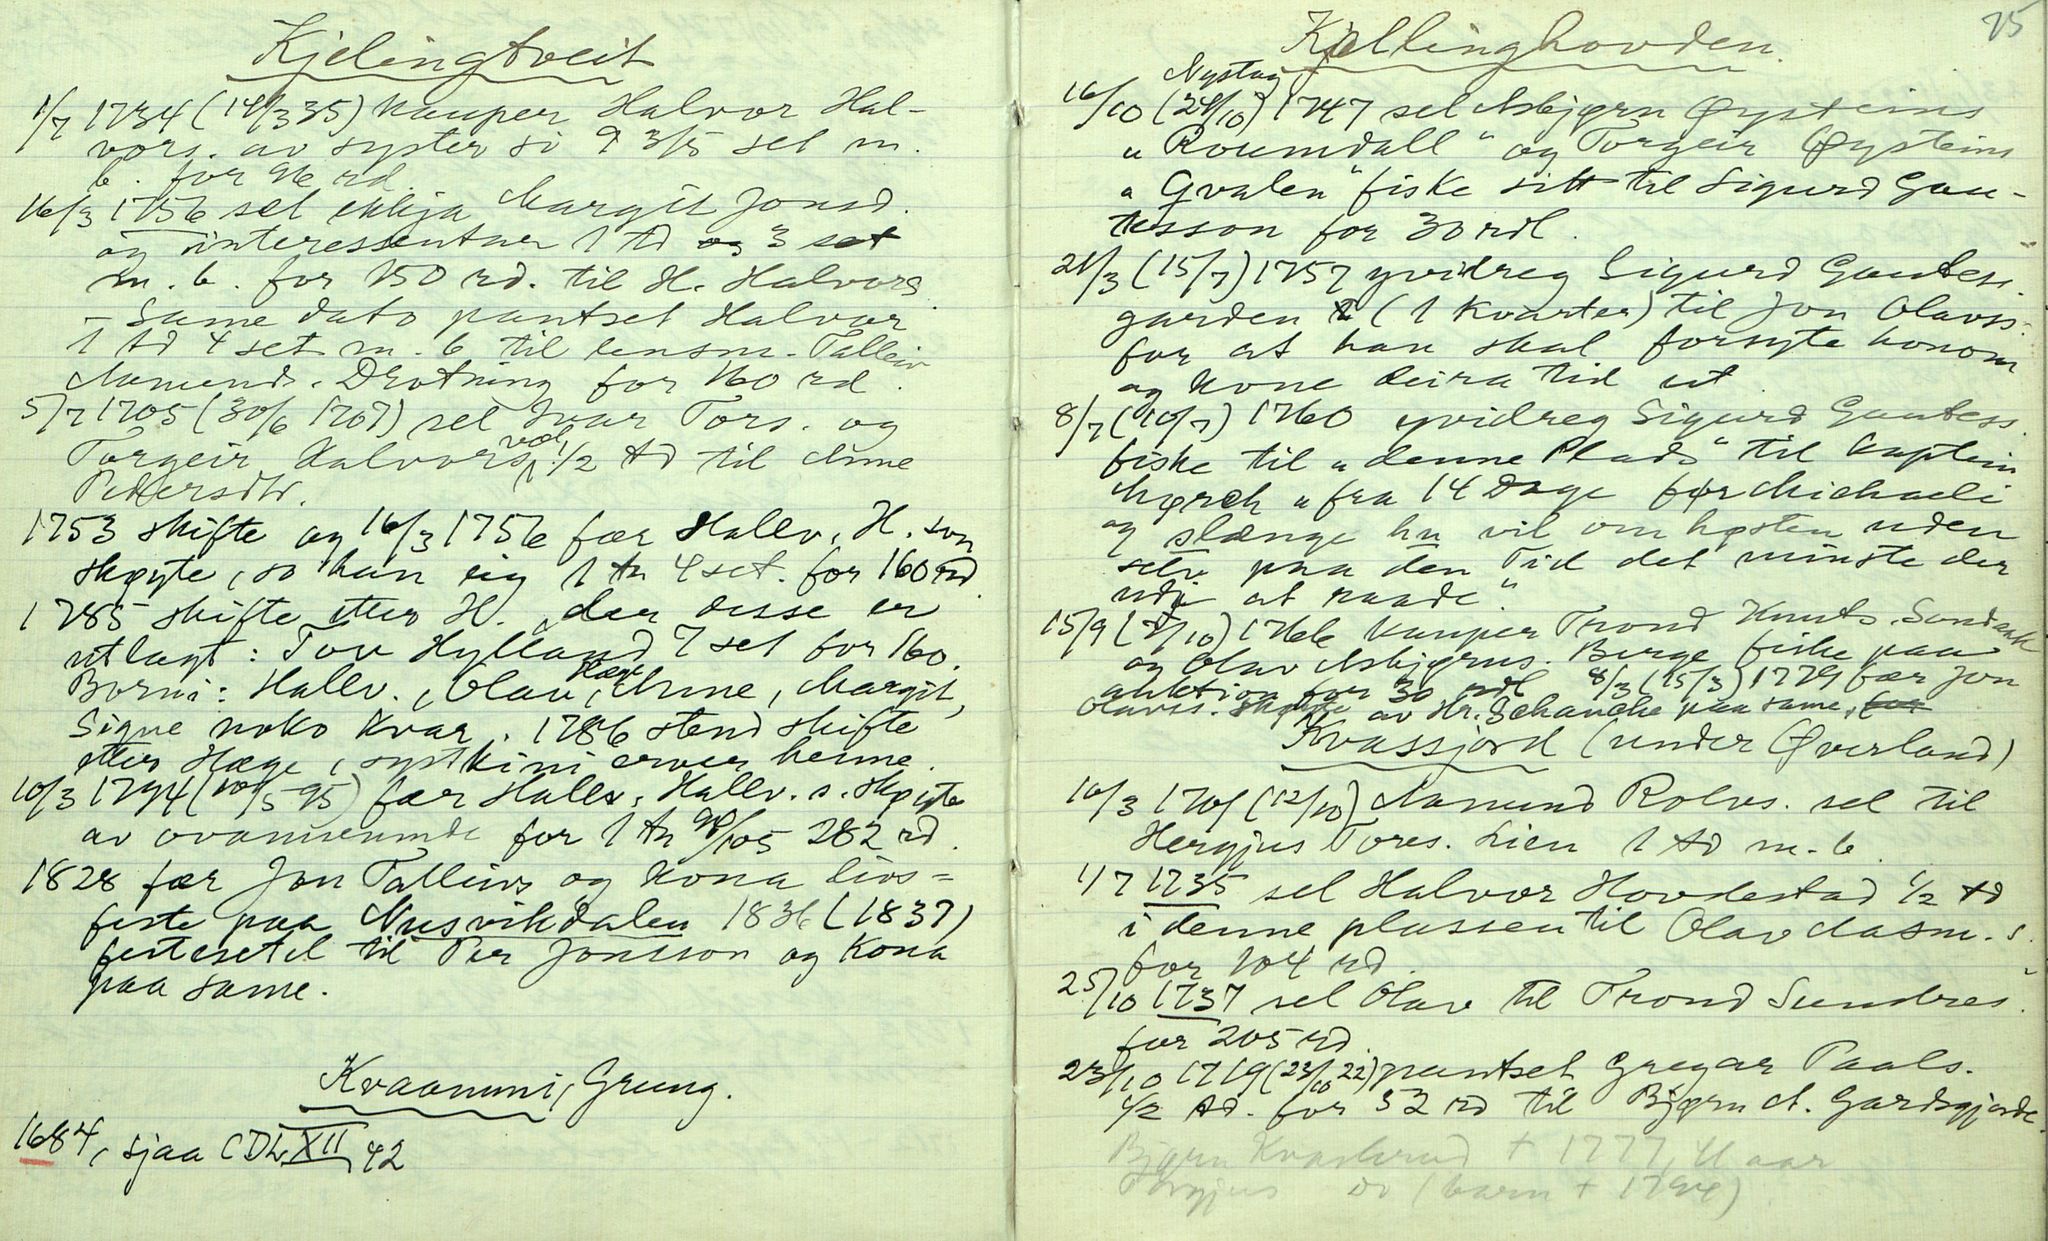 Kjelingtveit
1/7 1734 (14/3 35) kauper Halvor Hal-
vors. av syster si 9 3/5 set m.
b. for 96 rd.
16/3 1756 sel ekkja Margit Jonsd.
og interessentar 1 td og 3 set
m. b. for 150 rd. til H. Halvors
- Same dato pantset Halvor
1 td 4 set m. b til lensm. Tallein
Aamunds. Drotning for 160 rd.
5/7 1705 (30/6 1707) sel Ivar Tors. og
Torgeir Halvors. 1/2 td til Anne
Pedersdtr.
1753 skifte og 16/3 1756 fær Hallv. H. son
skøyte, so han eig 1 tn 4 set. for 160 rd
1785 skifte etter H., der desse er
utlagt: Tov Hylland 7 set for 160.
Borni: Hallv., Olav, Hæge, Anne, Margit,
Signe noko kvar. 1786 stend skifte
etter Hæge, systkini erver henne.
10/3 1794 (/5 95) fær Hallv. Hallv. s. skøyte
av ovannemnde for 1 tn 98/105 282 rd.
1828 fær Jon Talleivs og kona livs=
feste paa Nusvikdalen 1836 (1837)
festesetel til Per Jonsson og kona
paa same.
Kvaammi, Grung.
1684, sjaa CDL XII 42
25
Kjellinghovden.
Nystog
16/10 (24/10) 1747 sel Asbjørn Øysteins
"Roumdall" og Torgeir Øysteins
"Qvalen" fiske sitt til Sigurd Gau-
tesson for 30 rdl.
21/3 (15/7) 1757 yvidreg Sigurd Gautess.
garden (1 kvarter) til Jon Olavss.
for at han skal forsyte honom
og kone deira tid ut.
8/7 (10/7) 1760 yvidreg Sigurd Gautess.
fiske til "denne Plads" til kaptein
Mørch "fra 14 Dage før Michaeli
og slænge hn vil om høsten uden
selv paa den Tid det minste der
udi at raade".
15/9 (7/10) 1766 kauper Trond Knuts. Sandaak
og Olav Asbjørns. Berge fiske paa
auktion for 30 rdl 8/3 (15/3) 1779 fær Jon
Olavss. skøyte av Hr. Schanche paa same. for
Kvassjord (under Øverland)
16/3 1701 (12/10) Aamund Rolvs. sel til
Hergjus Tores. Lien 1 td m. b.
1/7 1735 sel Halvor Hovdestad 1/2 td
i denne plassen til Olav Aasm. s.
for 104 rd.
25/10 1737 sel Olav til Trond Sundres.
for 205 rd
23/10 1719 (23/10 22) pantset Gregar Paals.
1/2 td. for 52 rd til Bjørn A. Gardsgjorde.
Bjørn Kvasbrud + 1777, 41 aar
Torgjus do (barn + 1794)